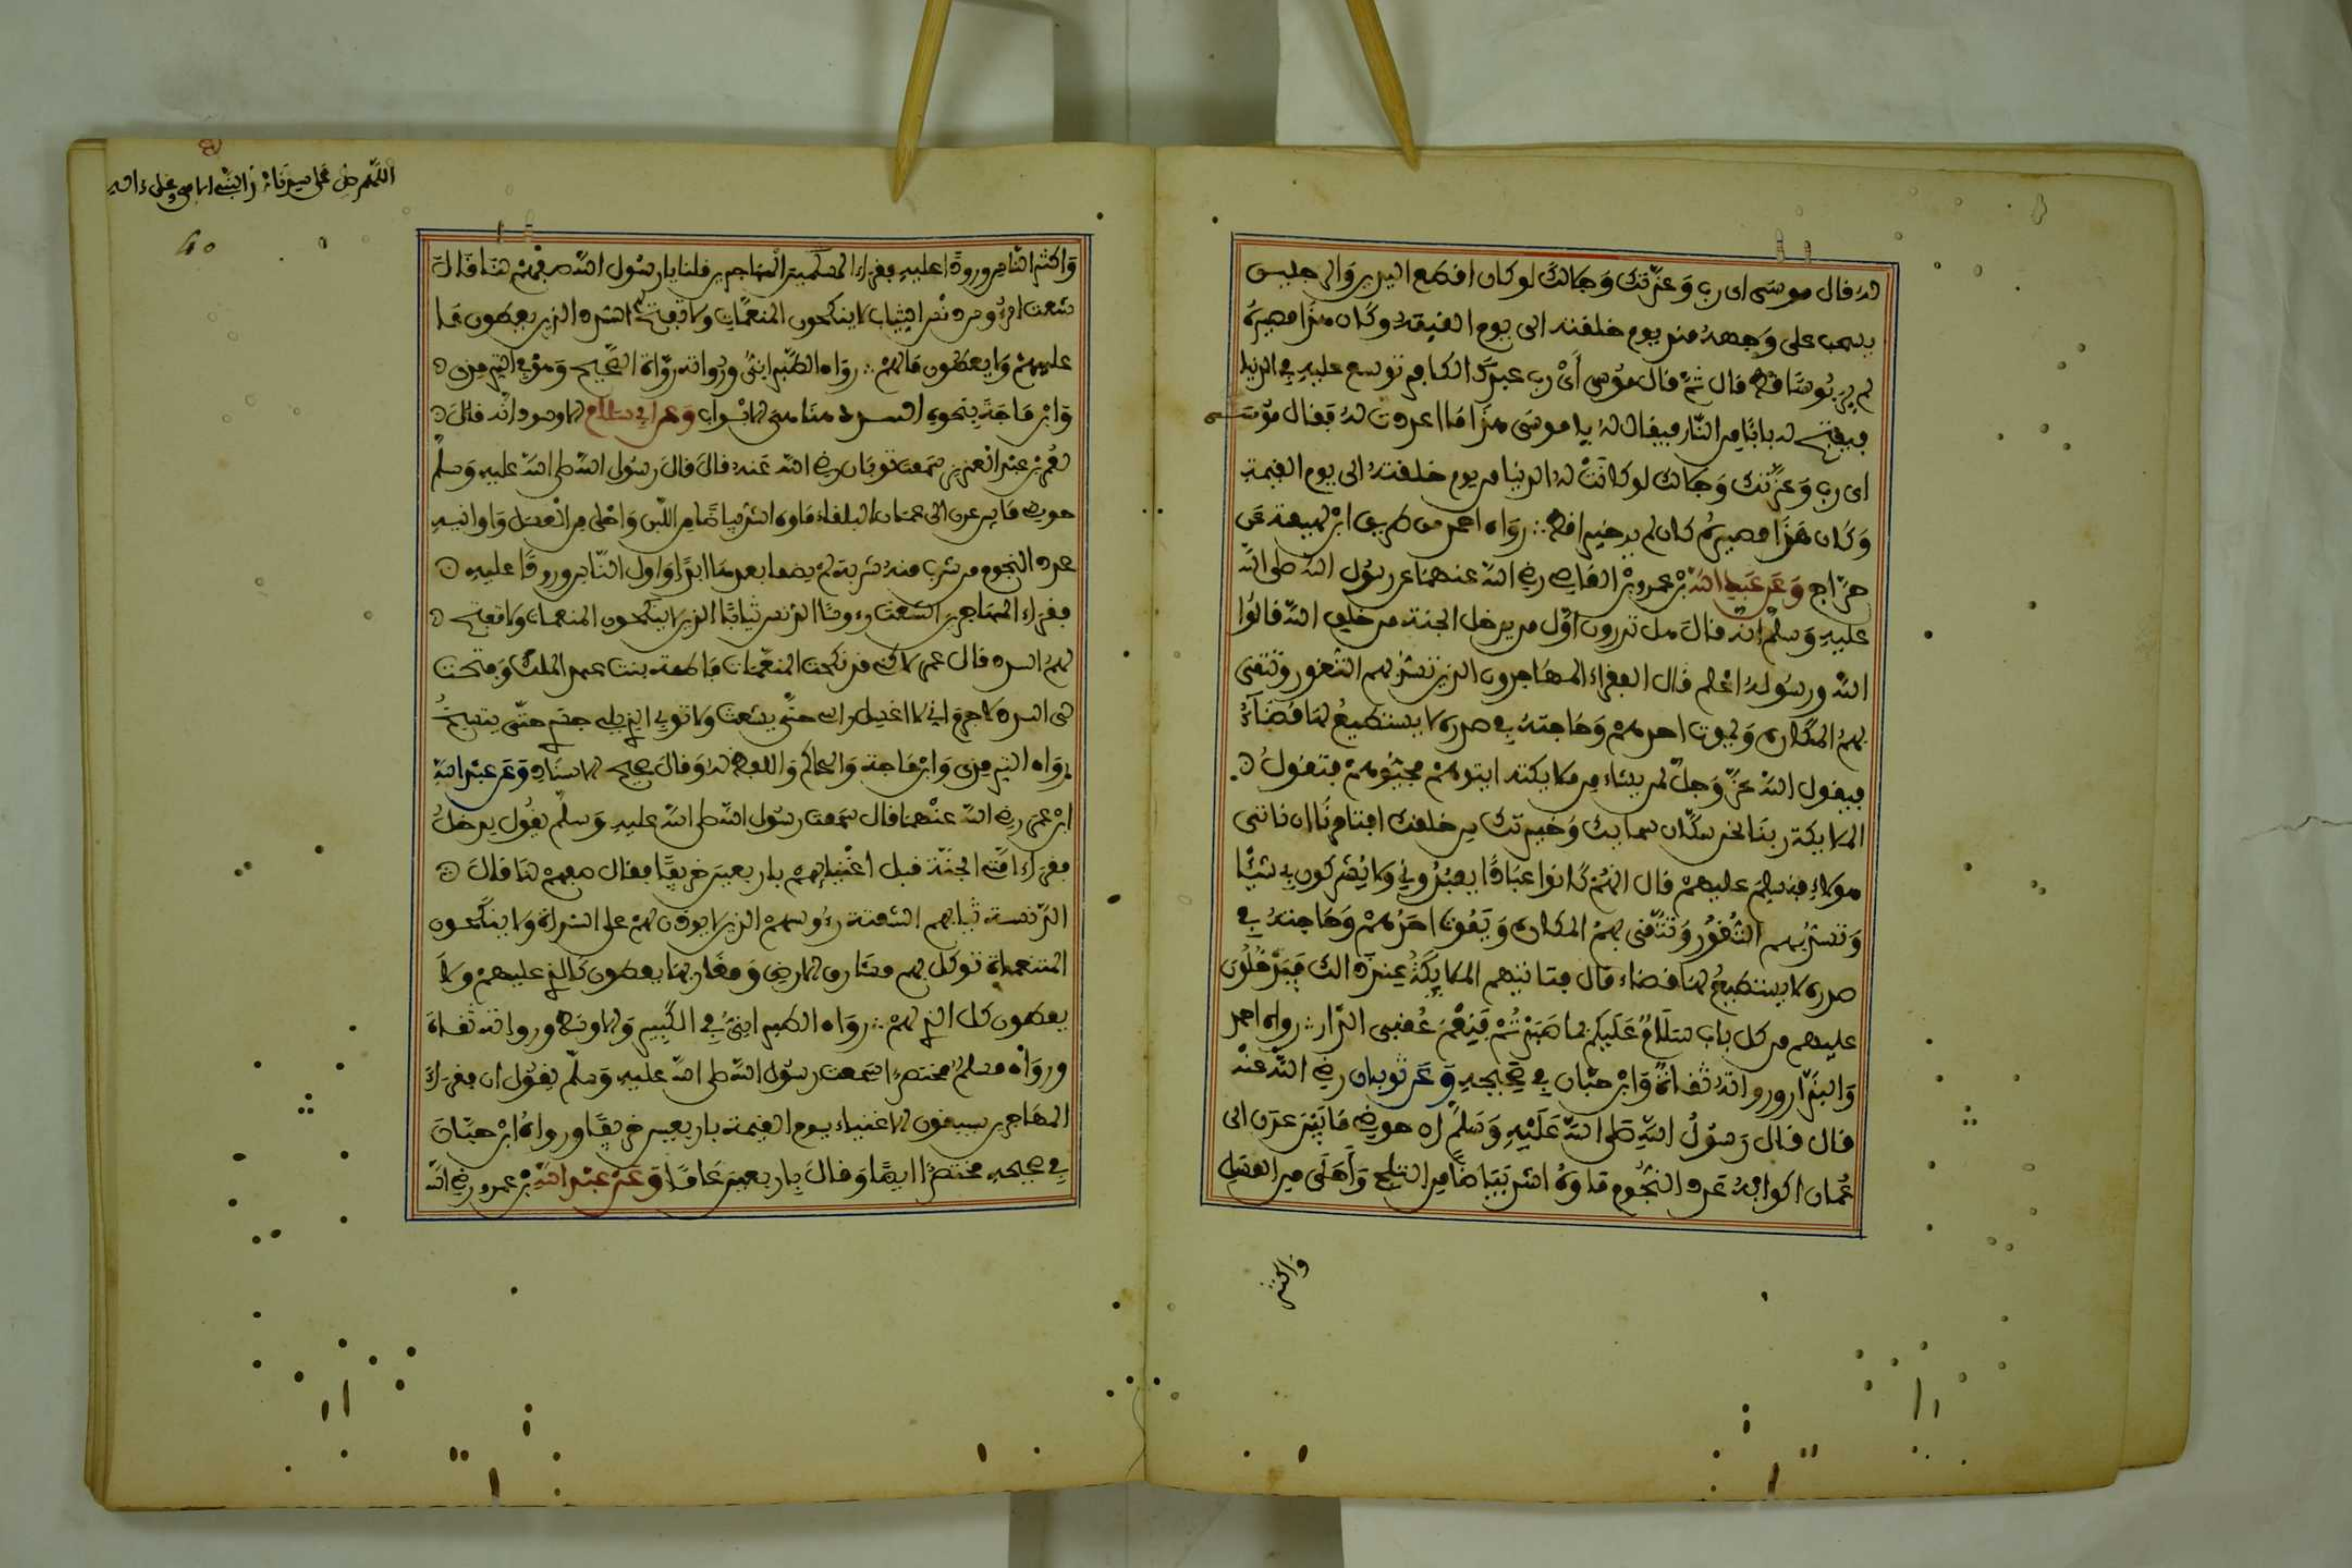 له قال موسى اى رب وعزتك وجلالك لو كان اقطع اليدين والرجلين
يسحب على وجهه منذ يوم خلقته الى يوم القيمة وكان هذا مصيره
لم ير بوسا قط قال ثم قال موسى أى رب عبدك الكافر توسع عليه في الدنيا
فيفتح له بابا من النار فيقال له يا موسى هذا ما اعددت له فقال موسى
اى رب وعزتك وجلالك لو كانت له الدنيا من يوم خلقته الى يوم القيمة
وكان هذا مصيره كان لم ير خيرا قط ∴ رواه احمد من طريق ابن لهيعة عن
دراج وعن عبد الله بن عمرو بن العاصى رضي الله عنهما عن رسول الله صلى الله
عليه وسلم انه قال هل تدرون اول من يدخل الجنة من خلق الله قالوا
الله ورسوله اعلم قال الفقراء المهاجرون الذين تسد بهم الثغور وتتقى
بهم المكاره ويموت احدهم وحاجته في صدره لا يستطيع لها قضآء
فيقول الله عز وجل لمن يشاء من ملايكته ايتوهم فحيوهم فتقول
الملايكة ربنا نحن سكان سمايك وخيرتك من خلقك افتامرنا ان ناتى
هولاء فنسلم عليهم قال انهم كانوا عبادا يعبدوني ولا يشركون بي شيئا
وتسد بهم الثغور وتتقى بهم المكاره ويموت احدهم وحاجته في
صدره لا يستطيع لها قضاء قال فتاتيهم الملايكة عند ذالك فيدخلون
عليهم من كل باب سلام عليكم بما صبرتم فنعم عقبى الدار ∴ رواه احمد
والبزار ورواته ثقات وابن حبان في صحيحه وعن ثوبان رضي الله عنه
قال قال رسول الله صلى الله عليه وسلم ان حوضي ما بين عدن الى
عمان اكوابه عدد النجوم ماوه اشد بياضا من الثلج وأحلى من العسل
واكثر
اللهم صل على سيدنا
40
واكثر الناس ورودا عليه فقراء المهاجرين قلنا يا رسول الله صفهم لنا قال
شعث الرءوس دنس الثياب لا ينكحون المنعمات ولا تفتح لهم السدد الذين يعطون ما
عليهم ولا يعطون ما لهم ∴ رواه الطبراني ورواته رواة الصحيح وهو في الترمذي
وابن ماجة بنحوه وعن ابي سلام الاسود انه قال
لعمر بن عبد العزيز سمعت ثوبان رضي الله عنه قال قال رسول الله صلى الله عليه وسلم
حوضي ما بين عدن الى عمان البلقاء ماوه اشد بياضا من اللبن واحلى من العسل واوانيه
عدد النجوم من شرب منه شربة لم يظما بعدها ابدا واول الناس ورودا عليه
فقراء المهاجرين الشعث رءوسا الدنس ثيابا الذين لا ينكحون المنعمات ولا تفتح
لهم السدد قال عمر لاكني قد نكحت المنعمات فاطمة بنت عبد الملك وفتحت
لى السدد لا جرم اني لا اغسل راسي حتى يشعث ولا ثوبي الذي يلي جسدي حتى يتسخ
رواه الترمذي وابن ماجة والحاكم واللفظ له وقال صحيح الاسناد وعن عبد الله
ابن عمر رضي الله عنهما قال سمعت رسول الله صلى الله عليه وسلم يقول يدخل
فقراء امتى الجنة قبل اغنيايهم باربعين خريفا فقال صفهم لنا قال
الدنسة ثيابهم الشعثة رءوسهم الذين لا يوذن لهم على السدات ولا ينكحون
المتنعمات توكل بهم مشارق الارض ومغاربها يعطون كل الذي عليهم ولا
يعطون كل الذي لهم ∴ رواه الطبراني في الكبير والاوسط ورواته ثقات
ورواه مسلم مختصرا سمعت رسول الله صلى الله عليه وسلم يقول ان فقراء
المهاجرين يسبقون الاغنياء يوم القيمة باربعين خريفا ورواه ابن حبان
في صحيحه مختصرا ايضا وقال باربعين عاما وعن عبد الله بن عمرو رضي الله